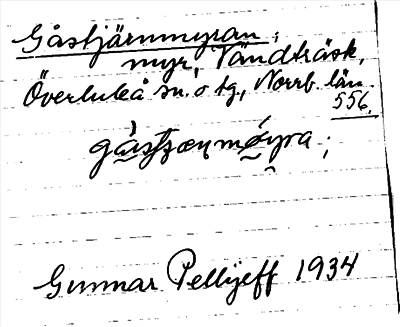 Gåstjärnmyran;
myr, Vändträsk,
Överluleå sn. o tg., Norrb. län
556.
Gunnar Pellijeff 1934